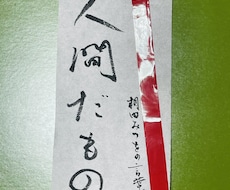 人間だもの
相田みつをの言葉